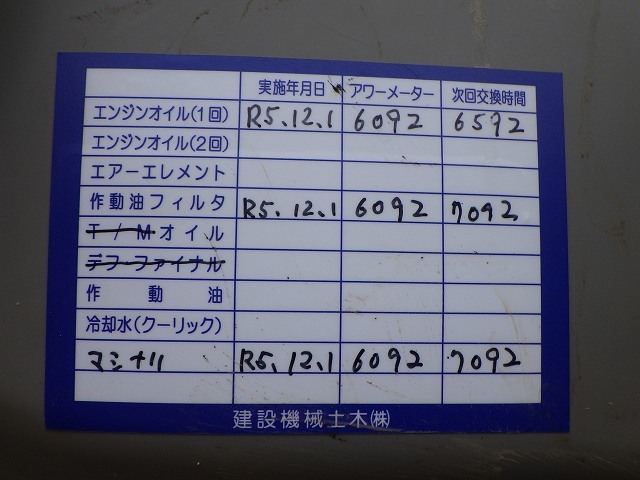 実施年月日 アワーメーター 次回交換時間
エンジンオイル(1回) R5.12.1 6092 6592
エンジンオイル(2回)
エアーエレメント
作動油フィルタ R5.12.1 6092 7092
T/Mオイル
デフ・ファイナル
作動油
冷却水(クーリック)
R5.12.1 6092 7092
建設機械土木(株)